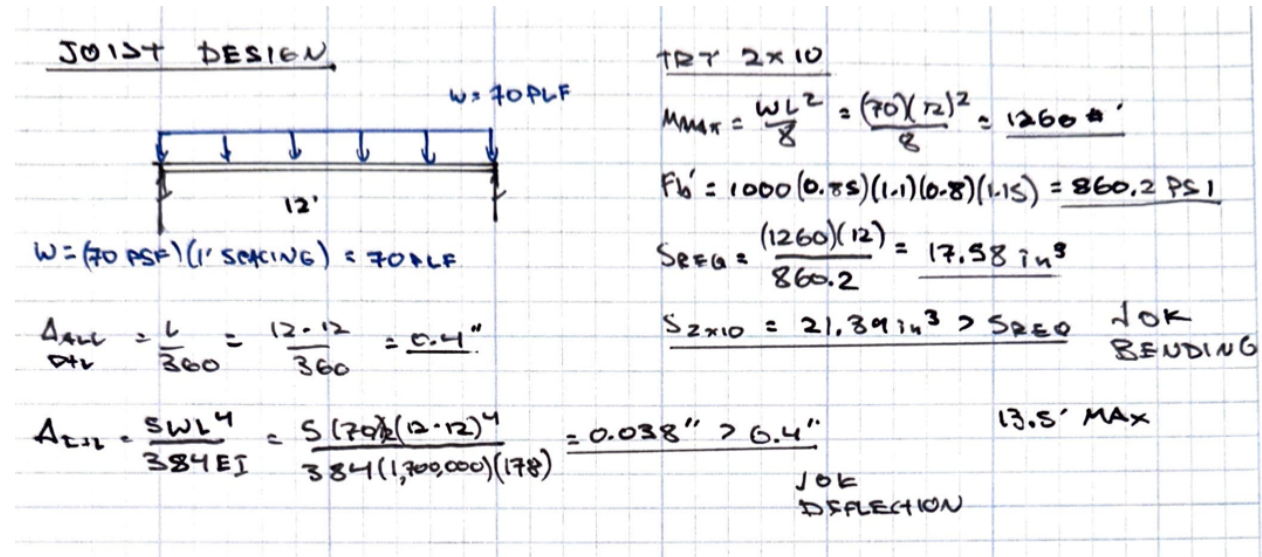 JOIST DESIGN
W = 70 PLF
12'
W = (70 PSF)(1' SPACING) = 70 PLF
Δ ALL D+L = L/360 = 12·12/360 = 0.4"
Δ D+L = 5WL⁴/384EI = 5(70)(12·12)⁴/384(1,700,000)(178) = 0.038" > 0.4"
√OK
DEFLECTION
TRY 2x10
MMAX = WL²/8 = (70)(12)²/8 = 1260 #'
Fb' = 1000(0.85)(1.1)(0.8)(1.15) = 860.2 PSI
SREQ = (1260)(12)/860.2 = 17.58 in³
S2x10 = 21.39 in³ > SREQ √OK
BENDING
13.5' MAX